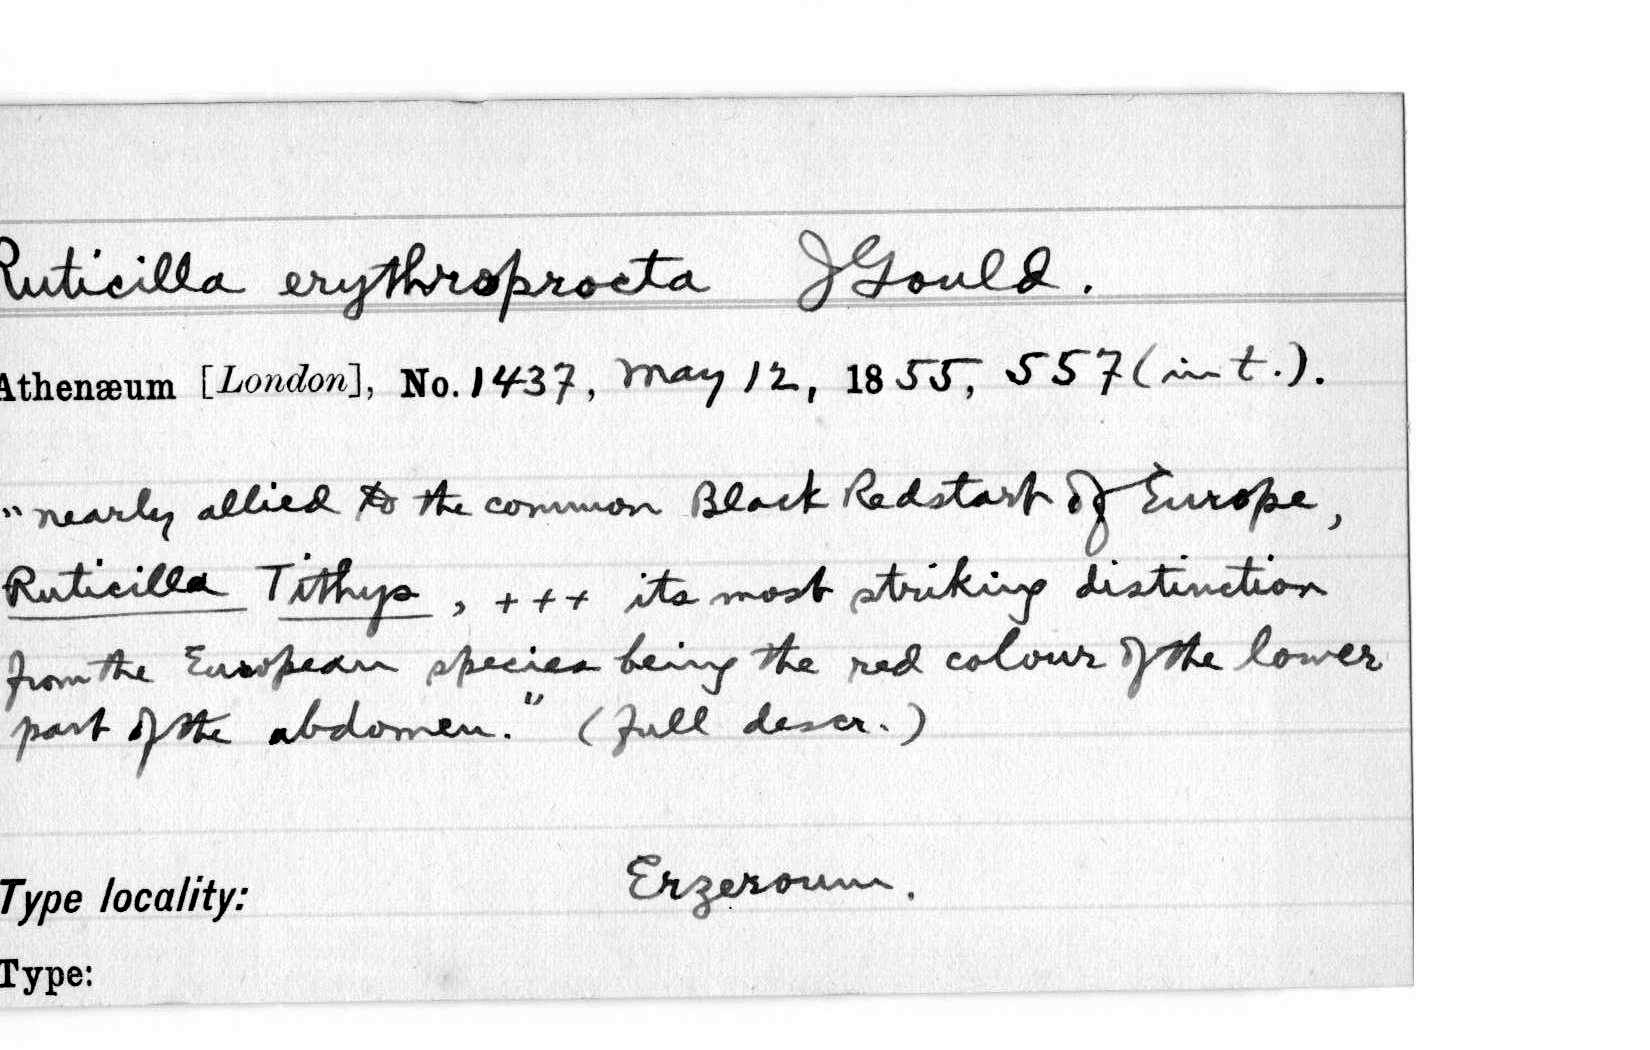 Ruticilla erythroprocta JGould.
Athenæum [London], No. 1437, May 12, 1855, 557 (int.).
"nearly allied to the common Black Redstart of Europe,
Ruticilla Tithys, +++ its most striking distinction
from the European species being the red colour of the lower
part of the abdomen." (full descr.)
Type locality: Erzeroum.
Type: